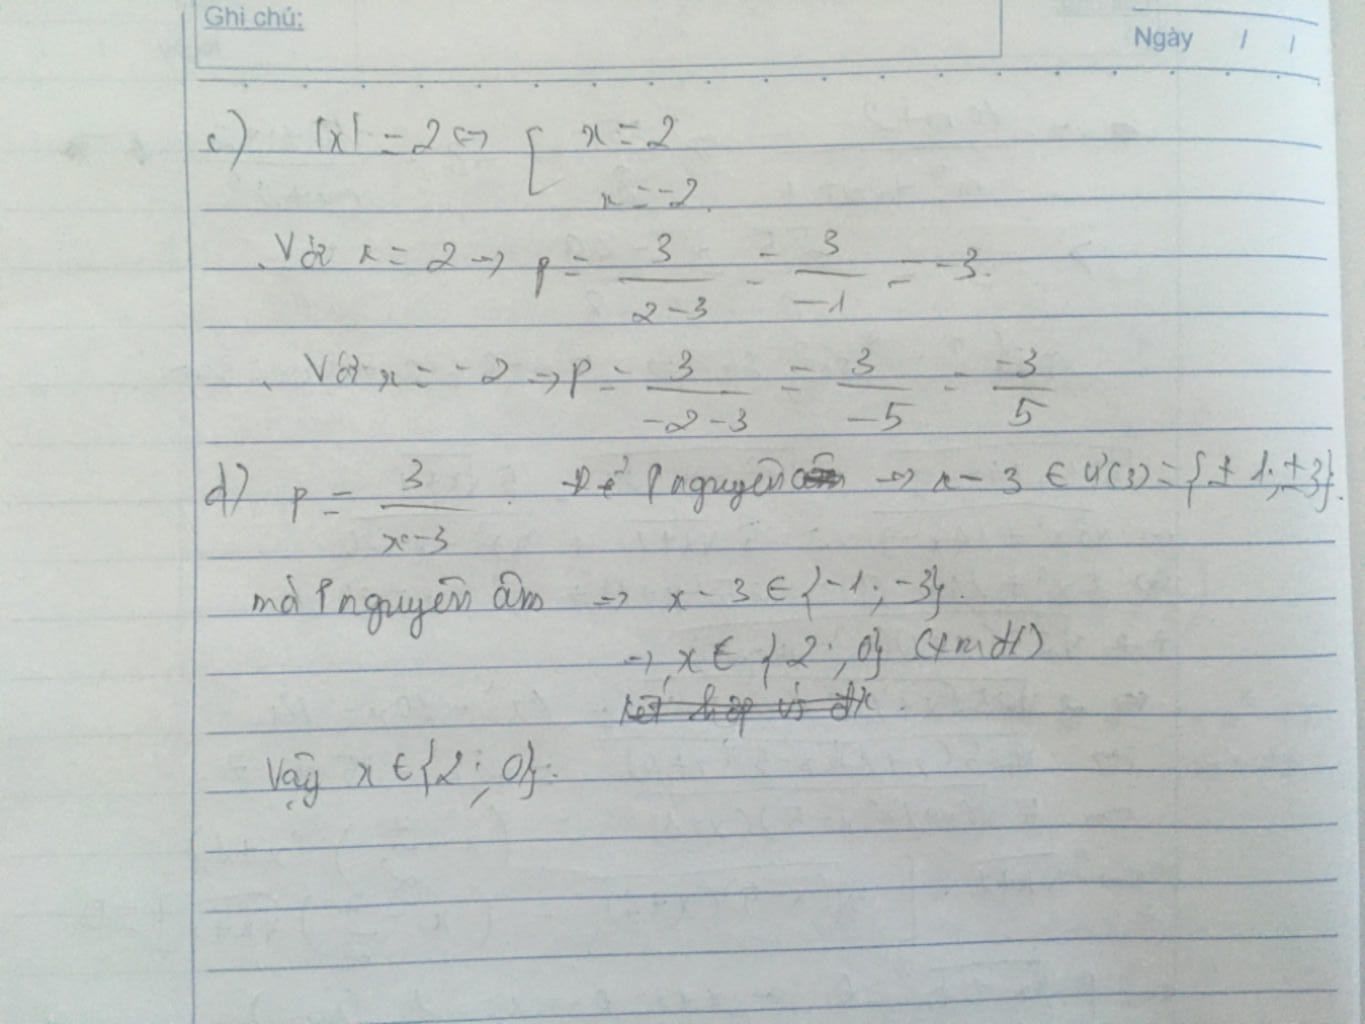 Ghi chú:
Ngày / /
c) |x| = 2 <=> [ x = 2
x = -2.
. Với x = 2 => p = 3/(2-3) = 3/-1 = -3.
. Với x = -2 => P = 3/(-2-3) = 3/-5 = -3/5
d) P = 3/(x-3) . Để P nguyên => x - 3 ∈ Ư(3) = {±1; ±3}.
mà P nguyên âm => x - 3 ∈ {-1; -3}.
=> x ∈ {2; 0} (tm đk)
kết hợp vs đk.
Vậy x ∈ {2; 0}.